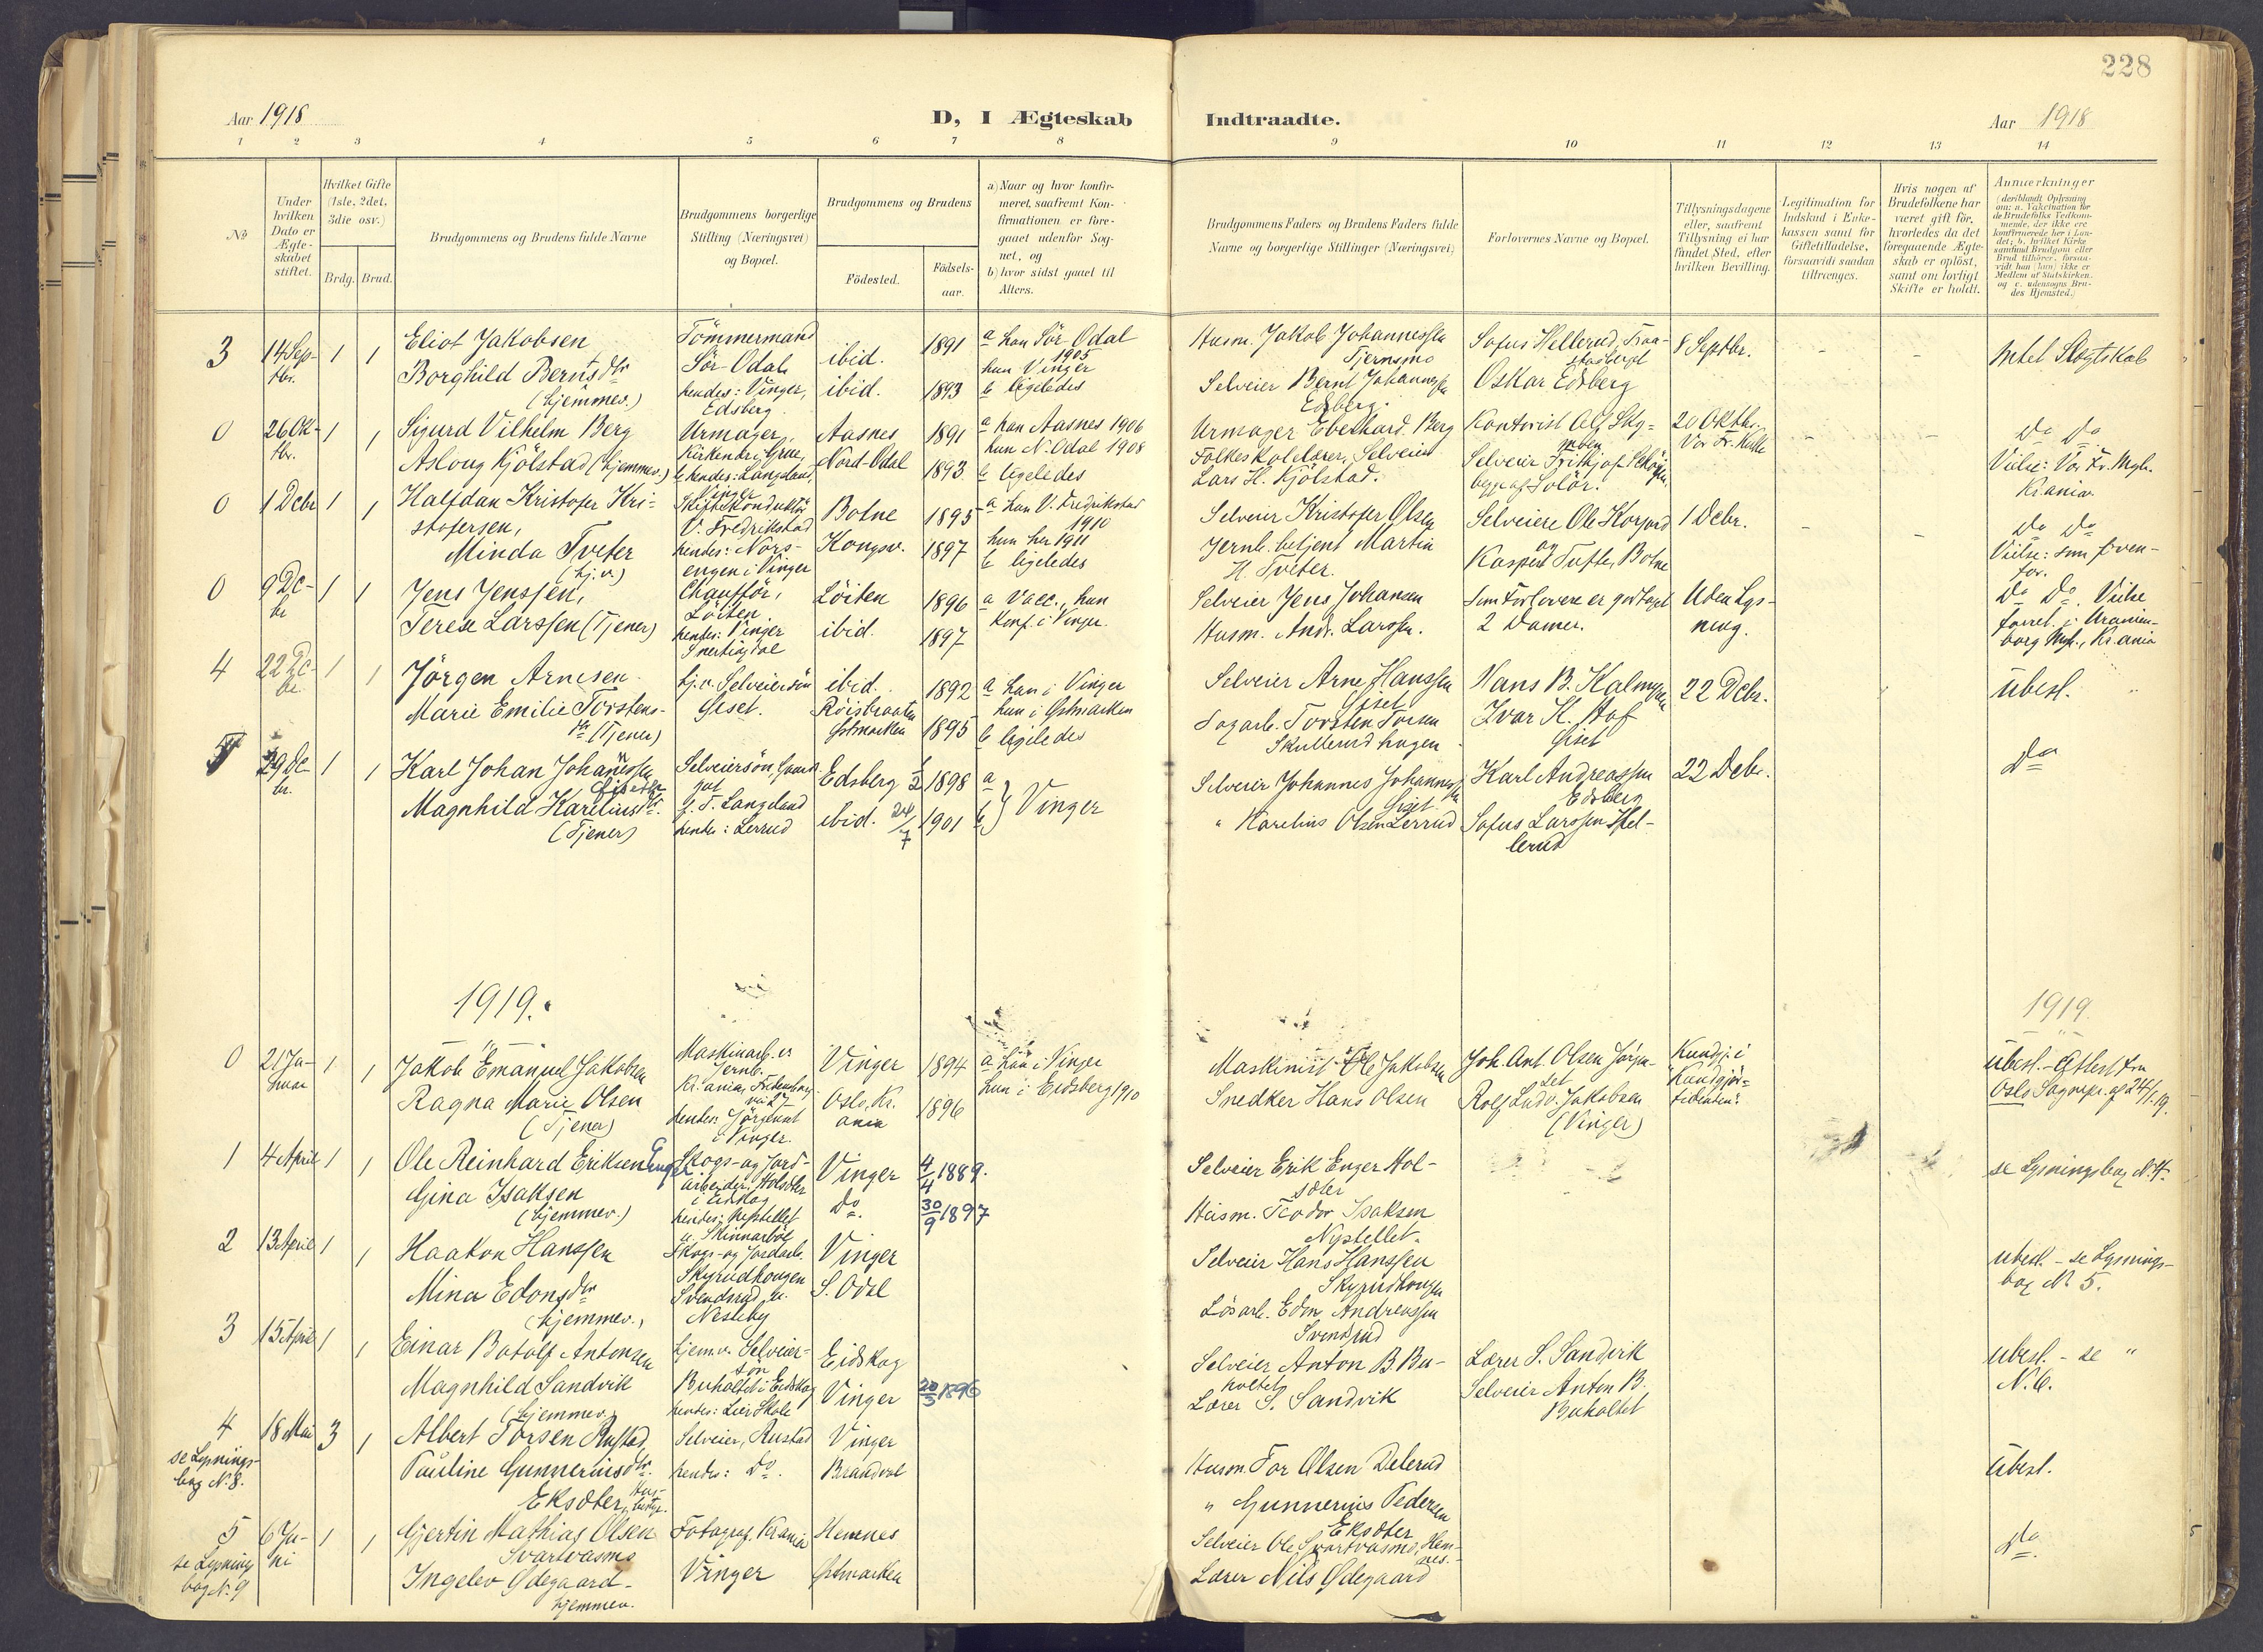 228
Aar 1918
D, I Ægteskab
Indtraadte.
Aar 1918
1 2 3 4 5 6 7 8
9 10 11 12 13 14
No
Under hvilken Dato er Ægteskabet stiftet.
Hvilket Gifte (1ste, 2det, 3die osv.)
Brdg. Brud.
Brudgommens og Brudens fulde Navne
Brudgommens borgerlige Stilling (Næringsvei) og Bopæl.
Brudgommens og Brudens
Födested.
Födsels-aar.
a) Naar og hvor konfirmeret, saafremt Konfirmationen er foregaaet udenfor Sognet, og
b) hvor sidst gaaet til Alters.
Brudgommens Faders og Brudens Faders fulde Navne og borgerlige Stillinger (Næringsvei)
Forlovernes Navne og Bopæl.
Tillysningsdagene eller, saafremt Tillysning ei har fundet Sted, efter hvilken Bevilling.
Legitimation for Indskud i Enkekassen samt for Giftetilladelse, forsaavidt saadan tiltrænges.
Hvis nogen af Brudefolkene har været gift før, hvorledes da det foregaaende Ægteskab er oplöst, samt om lovligt Skifte er holdt.
Anmærkninger
3 14 Septbr. 1 1
Eliot Jakobsen
Borghild Berntsdtr
(hjemmev.)
Tömmermand
Sör-Odal
hendes: Vinger,
Edsberg
ibid. 1891
ibid. 1893
a han Sör-Odal
1905
hun Vinger
b ligeledes
Husm. Jakob Johannessen
Tjernsmo
Selveier Bernt Johannessen
Edsberg.
Sofus Hellerud,
Oskar Edsberg
8 Septbr.
Intet Slegtskab
0 26 Oktbr. 1 1
Sigurd Vilhelm Berg
Asloug Kjölstad (hjemmev.)
Urmager,
Kirkenær i Grue,
hendes: Langeland,
Vinger
Aasnes 1891
Nord-Odal 1893
a han Aasnes 1906
hun N. Odal 1908
b ligeledes
Urmager Eberhard Berg
Folkeskolelærer, Selveier
Lars H. Kjölstad.
Kontorist Alf
Selveier Fritjof
begge af Solör.
20 Oktbr.
Vor Fr. Kirke
Do Do
Vielse: Vor Fr. Mgh.
Kr.ania
0 1 Debr 1 1
Halfdan Kristofer Kri-
stofersen,
Minda Tveter
(hj.v.)
Skiftekonduktör
V. Fredrikstad
hendes: Nors-
engen i Vinger
Botne 1895
Kongsv. 1897
a han V. Fredrikstad
1910
hun her 1911
b ligeledes
Selveier Kristofer Olsen
Jernb. betjent Martin
H. Tveter.
Selveiere Ole Korserd
og
Kasper Tufte, Botne
1 Debr.
Do Do
Vielse: som foven-
for.
0 9 Debr 1 1
Jens Jenssen,
Terese Larssen (Tjener)
Chaufför,
Löiten
hendes: Vinger
Löiten 1896
ibid. 1897
a Vacc., hun
Konf. i Vinger.
Selveier Jens Johansen
Husm. Andr. Larssen.
Som Forlovere er godtaget
2 Damer.
Uden Lys-
ning.
Do Do. Vielse
forret. i Uranien-
borg Mgh., Kr.ania
4 22 Debr. 1 1
Jörgen Arnesen
Marie Emilie Torstens-
dtr (Tjener)
hj.v. Selveiersön
Giset.
ibid. 1892
Röisbraaten
Østmarken 1895
a han i Vinger
hun i Østmarken
b ligeledes
Selveier Arne Hanssen
Giset
Sagarb. Torsten Torsen
Skullerud hagen
Hans B. Kalmyra
Ivar K. Hof
Giset
22 Debr.
übesl.
5 29 Debr. 1 1
Karl Johan Johanessen
Magnhild Kareliusdtr.
(Tjener)
Selveiersön,
Langeland
hendes: Lerrud
Edsberg 1898
ibid. 24/7 1901
a
b } Vinger
Selveier Johannes Johannessen
Giset
" Karelius Olsen Lerrud
Karl Andreassen
Edsberg
Sofus Larssen Hel-
lerud
22 Debr.
Do
1919.
1919.
0 21 Januar 1 1
Jakob Emanuel Jakobsen
Ragna Marie Olsen
(Tjener)
Maskinarb. v.
Jernb.
Kr.ania,
hendes: Jörgentvet
i Vinger.
Vinger 1894
Oslo, Kr.ania 1896
a han i Vinger
hun i Eidsberg 1910
Maskinist Ole Jakobsen
Snedker Hans Olsen
Joh. Ant. Olsen
Rolf Ludv. Jakobsen
(Vinger)
Kundgj. i
"Kundgjör-
tidenden".
übesl. – Attest fra
Oslo Sognepr. af 24/1.19.
1 4 April 1 1
Ole Reinhard Eriksen Enger
Gina Isaksen
(hjemmev.)
Skogs- og Jord-
arbeider, Holsdter
i Eidskog
hendes: Nystellet
u. Skinnarböl
Vinger 4/4 1889.
Do. 30/9 1897
Selveier Erik Enger Hol-
sdter
Husm. Teodor Isaksen
Nystellet.
se Lysningsbog No 4.
2 13 April 1 1
Haakon Hanssen
Mina Edonsdtr
(hjemmev.)
Skogs- og Jordarb.
Skyrudhougen
Svendsrud u.
Nesteby
Vinger
S. Odal
Selveier Hans Hanssen
Skyrudhougen
Lösarb. Edon Andreassen
Svendsrud
übesl. – se Lysnings-
bog No 5.
3 15 April 1 1
Einar Botolf Antonsen
Magnhild Sandvik
(hjemmev.)
hjem.v. Selveier-
sön
Buholtet i Eidskog
hendes: Lier Skole
Eidskog
Vinger 20/3 1896
Selveier Anton B. Bu-
holtet
Lærer S. Sandvik
Lærer S. Sandvik
Selveier Anton B.
Buholtet
übesl. – se "
N. 6.
4 18 Mai 3 1
se Lysnings-
bog No. 8.
Albert Torsen Rustad,
Pauline Gunneriusdtr.
Eksdter,
Selveier, Rustad
hendes: Do.
Vinger
Brandval
Husm. Tor Olsen Delerud
" Gunnerius Pedersen
Eksdter
übesl.
5 6 Juni 1 1
se Lysnings
bog No. 9
Gjertin Mathias Olsen
Svartvasmo
Ingelev Ødegaard
hjemmev.
Fotograf, Krania
Vinger
Hemnes
Østmarken
Selveier Ole Svartvasmo, Hem-
nes.
Lærer Nils Ødegaard
Do.